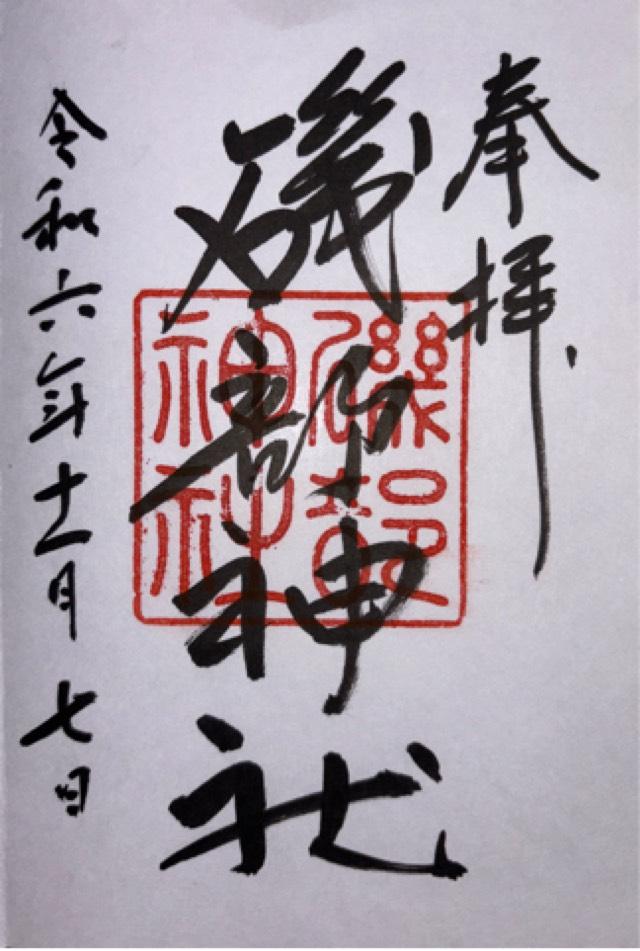 奉拝
磯部神社
磯部
神社
令和六年十一月七日